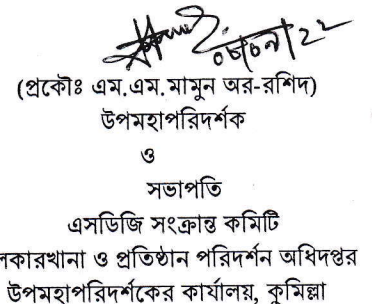 (প্রকৌঃ এম.এম.মামুন অর-রশিদ)
উপমহাপরিদর্শক
ও
সভাপতি
এসডিজি সংক্রান্ত কমিটি
লকারখানা ও প্রতিষ্ঠান পরিদর্শন অধিদপ্তর
উপমহাপরিদর্শকের কার্যালয়, কুমিল্লা